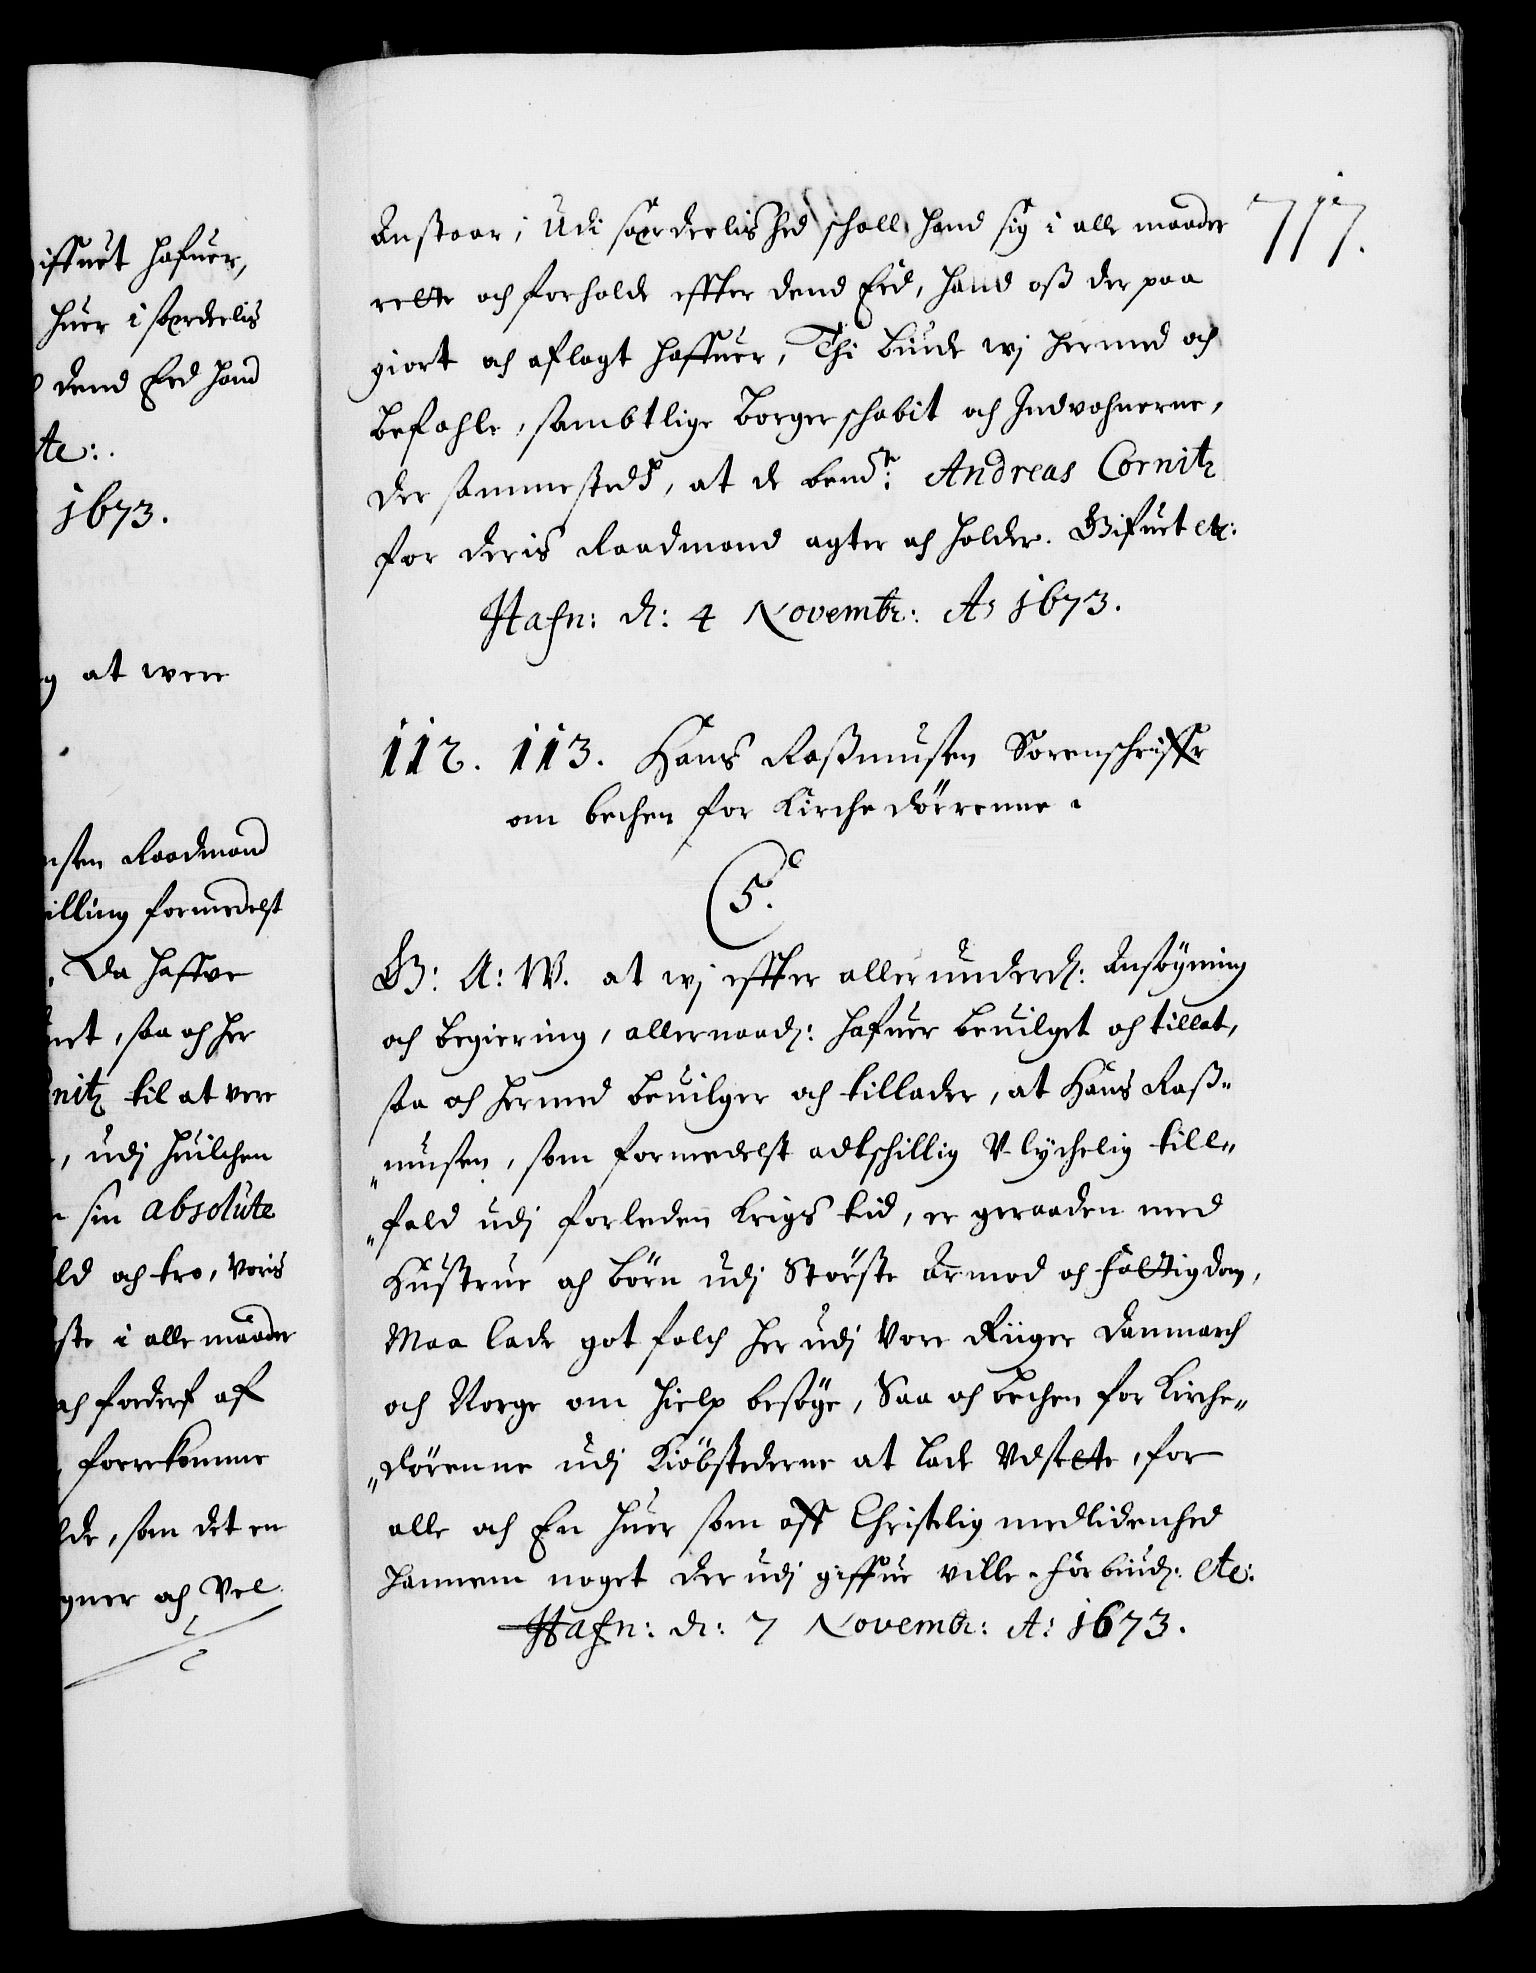 iffuet hafuer,
huer i særdeelis
dend Eed hand
etc:.
1673.
at were
nsten Raadmand
illing formedelst
, Da haffve
net, saa och her
nitz til at vere
, udj huilchen
sin absolute
ld och tro, voris
ste i alle maader
och forderf af
forrekomme
lde, som det en
gner och Vel
717.
Anstaar; Udi særdeelished schall hand sig i alle maader
rette och forholde effter dend Eed, hand oß der paa
giort och aflagt haffuer, Thi biude wj hermed och
befahle, sambtlige borgerschabit och Indvohnerne,
der sammesteds, at de bemte: Andreas Cornitz
for deris Raadmand agter och holder. Gifuet etc:
Hafn: d: 4 Novembr: Ao 1673.
112. 113. Hans Raßmusen Sorenschriffr
om bechen for Kirchedörrenne.
5.
G: A: W. at wj effter allerunderd: Ansøgning
och begiering, allernaad: hafuer beuilget och tillat,
saa och hermed beuilger och tillader, at Hans Raß„
„musen, som formedelst adtschillig V-lychelig till„
„fald udj forleden krigs tid, er geraaden med
Hustrue och börn udj Störste Armod och fattigdom,
Maa lade got folch her udj Vore Riiger Danmarch
och Norge om hielp besöge, Saa och bechen for Kirche„
„dörenne udj Kiöbstederne at lade Vdsette, for
alle och En huer som aff Christelig medlidenhed
hannem noget der udj giffue ville. forbiud: etc:
Hafn: d: 7 Novembr: A: 1673.